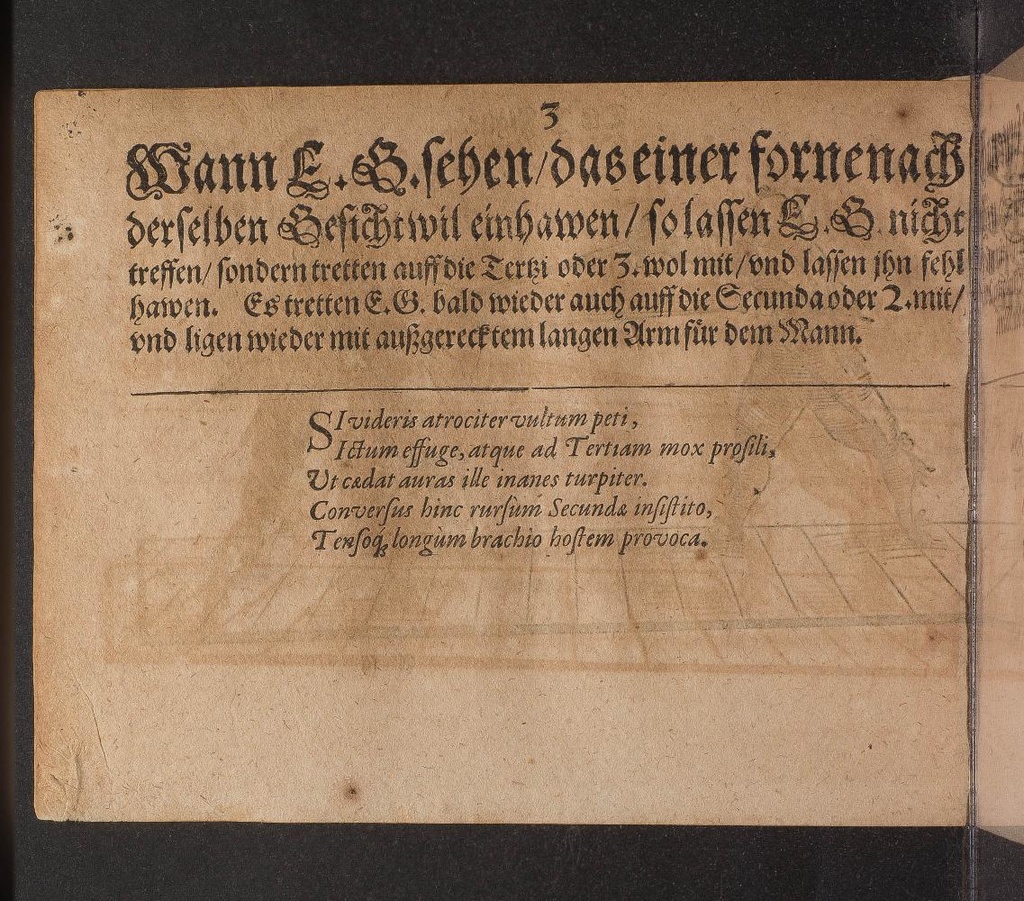 3
Wann E. G. sehen/das einer fornenach
derselben Gesicht wil einhawen/ so lassen E. G. nicht
treffen/ sondern tretten auff die Tertzi oder 3. wol mit/ vnd lassen jhn fehl
hawen. Es tretten E. G. bald wieder auch auff die Secunda oder 2. mit/
vnd ligen wieder mit außgerecktem langen Arm für dem Mann.
SI videris atrociter vultum peti,
Ictum effuge, atque ad Tertiam mox prosili,
Ut cædat auras ille inanes turpiter.
Conversus hinc rursùm Secundæ insistito,
Tensoq́; longùm brachio hostem provoca.